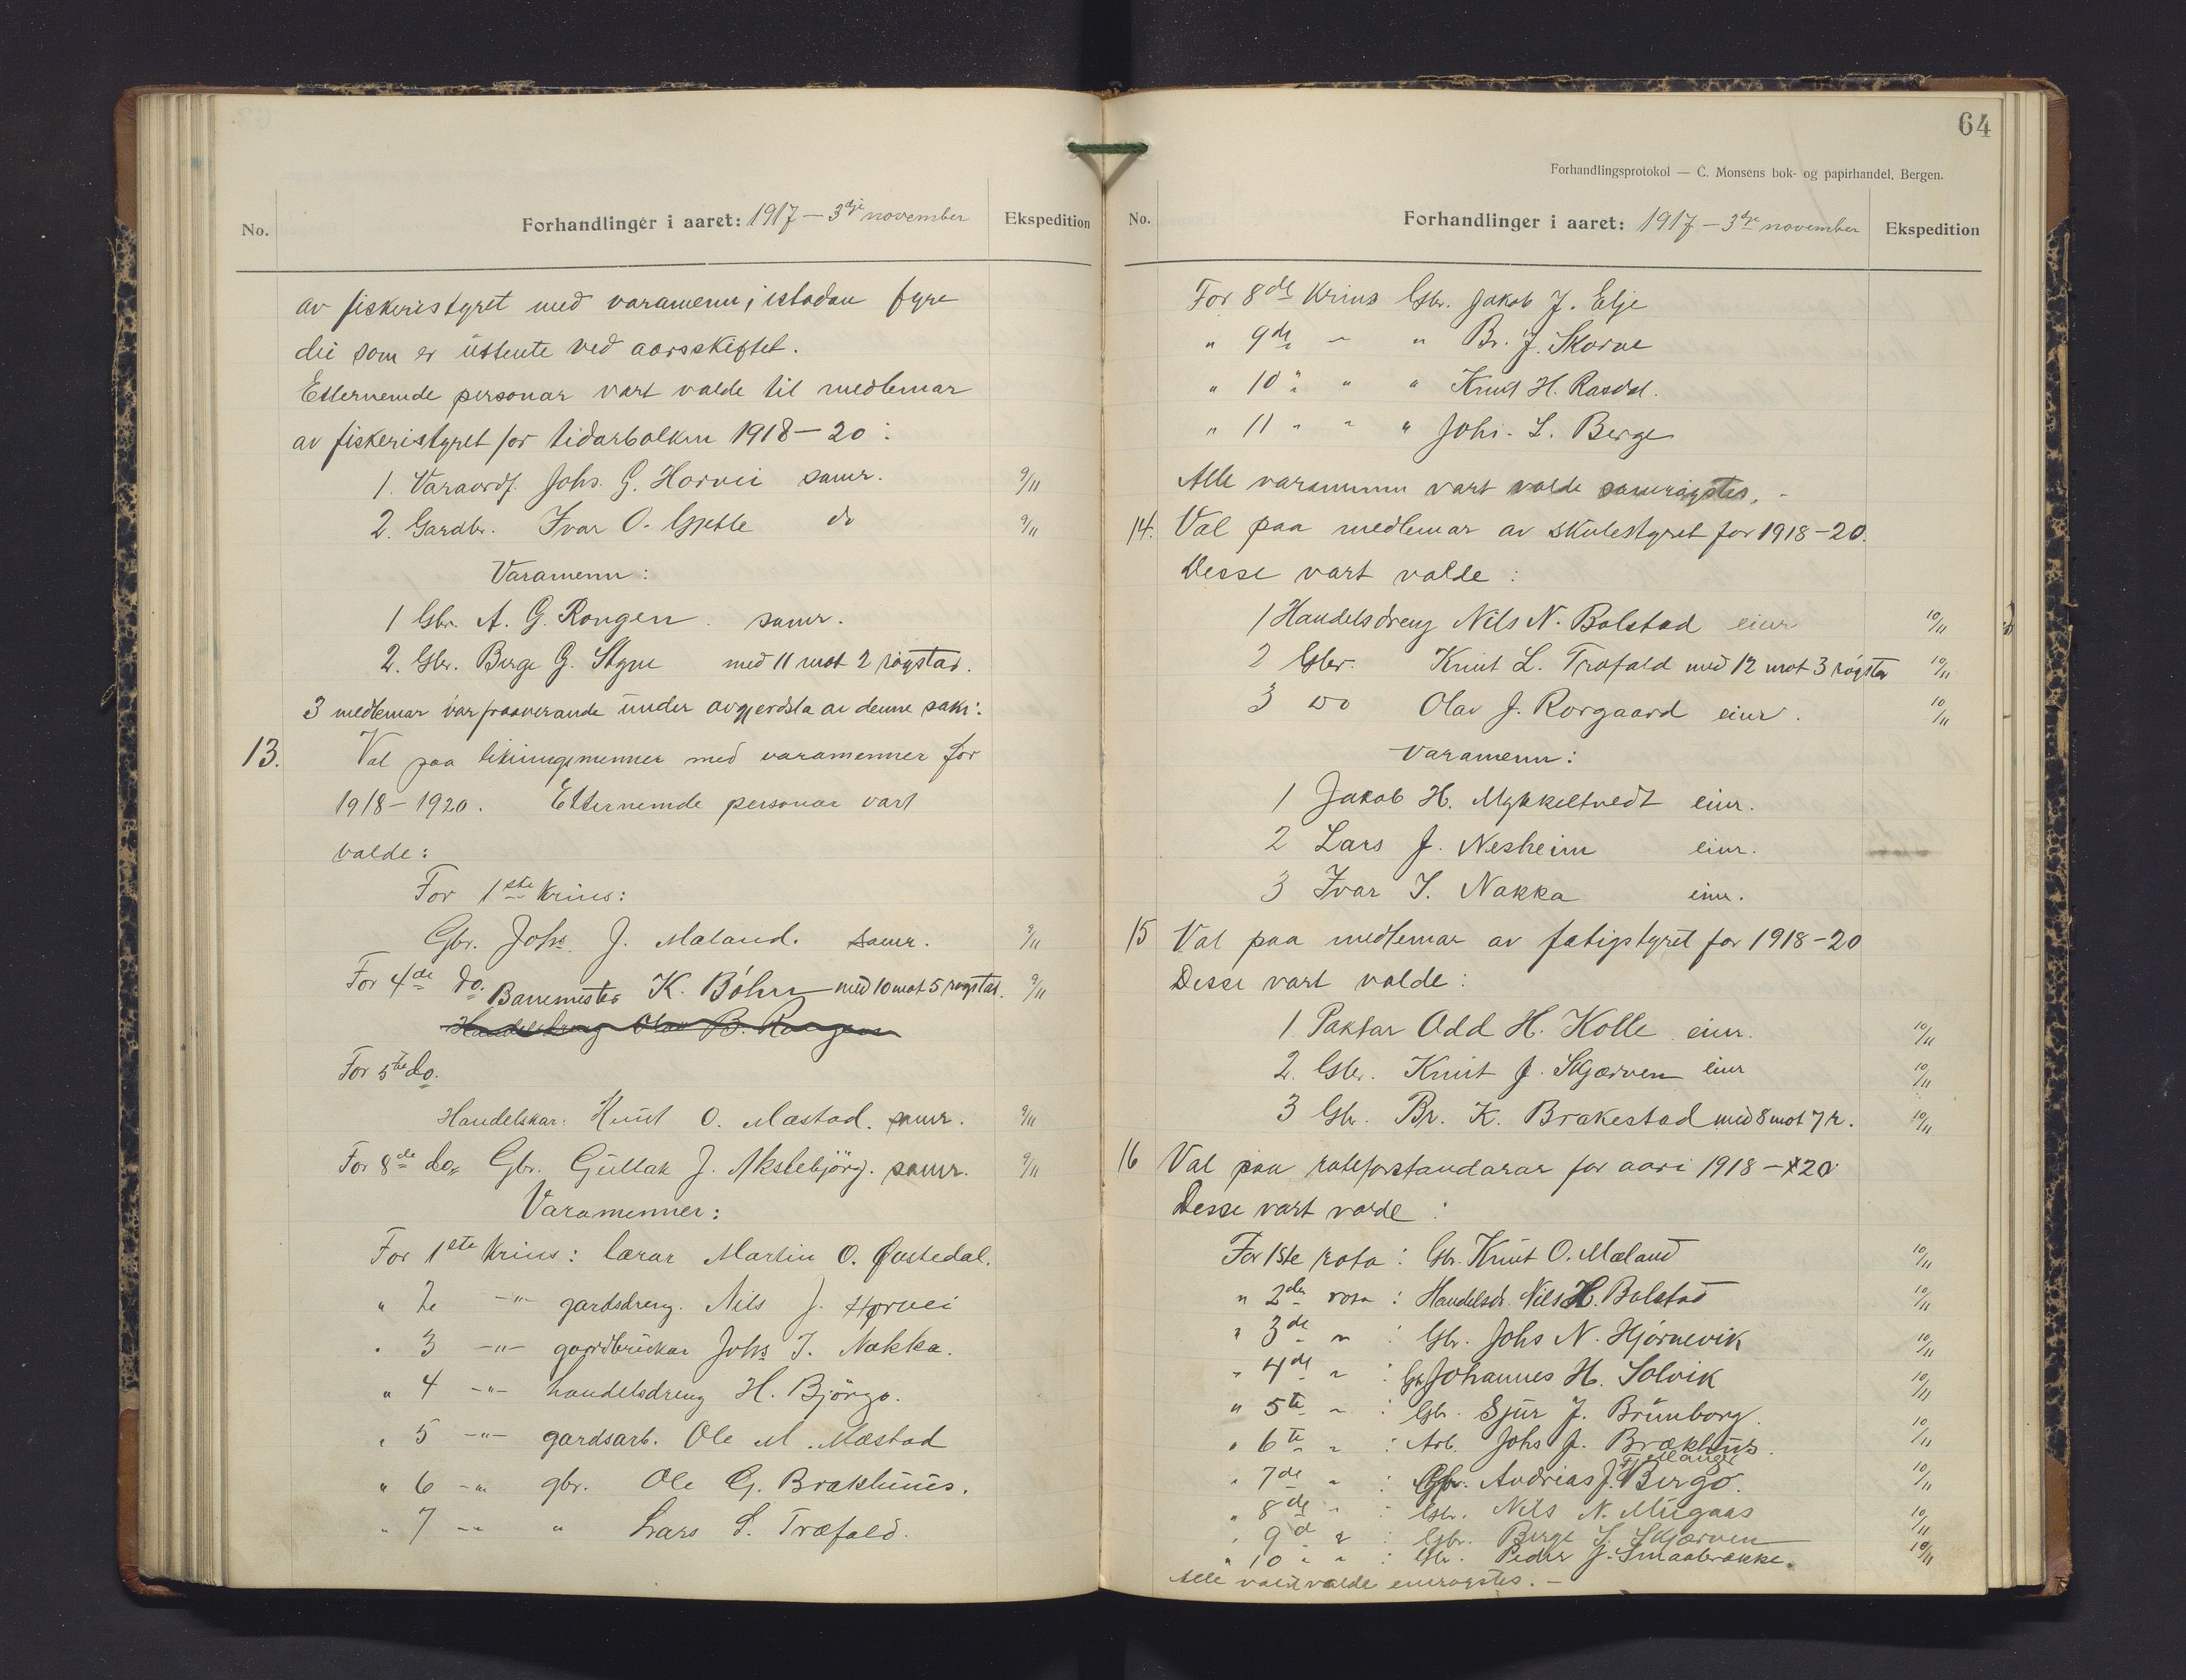 No.
Forhandlinger i aaret: 1917 — 3dje november
Ekspedition
av fiskeristyret med varamenn, istadan fyre
dei som er uttente ved aarsskiftet.
Etternemde personar vart valde til medlemar
av fiskeristyret for tidarbolken 1918—20:
1. Varaordf. Johs. G. Horvei samr. 9/11
2. Gardbr. Ivar O. Gjelle do 9/11
Varamenn:
1 Gbr. A. G. Rongen. samr.
2. Gbr. Berge G. Styve med 11 mot 2 røystar.
3 medlemar var fraaverande under avgjerdsla av denne saki.
13. Val paa likningsmenner med varamenner for
1918—1920. Etternemde personar vart
valde:
For 1ste krins:
Gbr. Johs. J. Mæland. samr. 9/11
For 4de do. Banemester K. Böhn med 10 mot 5 røystar. 9/11
Handelsdreng Olav B. Rongen
For 5te do.
Handelskar: Knut O. Mæstad. samr. 9/11
For 8de do. Gbr. Gullak J. Akslebjörg. samr. 9/11
Varamenner:
For 1ste krins: lærar Martin O. Fostedal.
" 2 -"- gardsdreng. Nils J. Horvei
" 3 -"- gardbrukar Johs I. Nakka.
" 4 -"- handelsdreng H. Björgo.
" 5 -"- gardsarb. Ole M. Mæstad
" 6 -"- gbr. Ole G. Brækhus.
" 7 -"- " Lars L. Træfald.
64
Forhandlingsprotokol — C. Monsens bok- og papirhandel, Bergen.
No.
Forhandlinger i aaret: 1917 — 3dje november
Ekspedition
For 8de krins Gbr. Jakob J. Elje
" 9de " " Br. J. Skorve
" 10" " " Knut H. Rasdal.
" 11 " " " Johs. L. Berge
Alle varamenn vart valde samrøystes. -
14. Val paa medlemar av skulestyret for 1918—20.
Desse vart valde:
1 Handelsdreng Nils N. Bolstad einr 10/11
2 Gbr. Knut L. Træfald med 12 mot 3 røyster 10/11
3 do Olav J. Rorgaard einr. 10/11
Varamenn:
1 Jakob H. Mykkeltvedt einr.
2 Lars J. Nesheim einr.
3 Ivar I. Nakka einr.
15 Val paa medlemar av fatigstyret for 1918—20
Desse vart valde:
1. Paktar Odd H. Kolle einr. 10/11
2. Gbr. Knut J. Skjerven einr 10/11
3 Gbr. Br. K. Brakestad med 8 mot 7 r. 10/11
16 Val paa roteforstandarar for aari 1918—20
Desse vart valde:
For 1ste rota: Gbr. Knut O. Mæland 10/11
" 2den rota: Handelsdr. Nils H. Bolstad 10/11
" 3de " : Gbr. Johs N. Hjørnevik 10/11
" 4de " : Gbr. Johannes H. Solvik 10/11
" 5te " : Gbr. Sjur J. Brunborg. 10/11
" 6te " : Arb. Johs J. Brækhus. 10/11
" 7de " : Gbr. Andrias J. Fjellanger Bergo. 10/11
" 8de " : Gbr. Nils N. Mugaas 10/11
" 9d " : Gbr. Berge S. Skjerven 10/11
" 10 " " : Gbr. Peder J. Smaabrekke. 10/11
Alle vart valde einrøystes. —